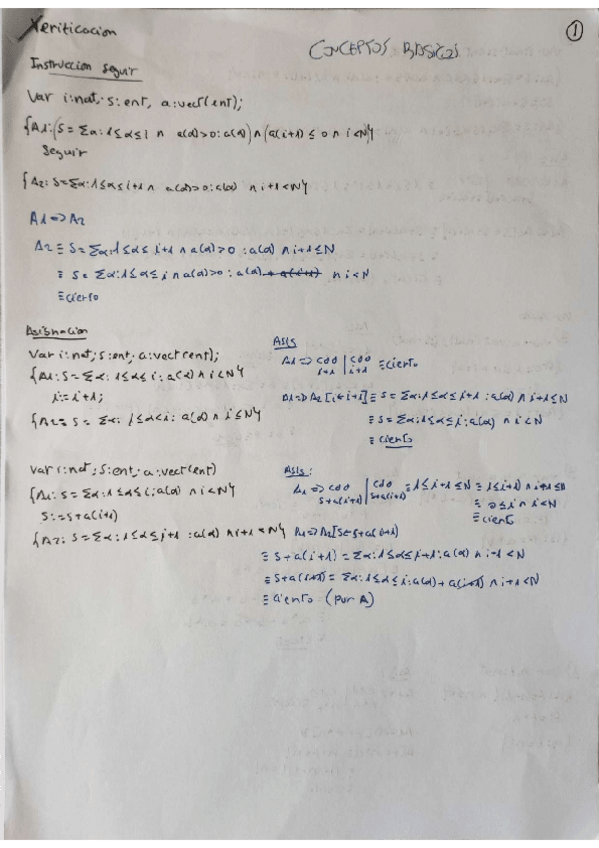 Verificacion
①
CONCEPTOS BASICOS
Instruccion seguir
Var i:nat; s:ent, a:vect(ent);
{A1:(s = Σα:1≤α≤i ∧ a(α)>0:a(α)) ∧ (a(i+1) ≤ 0 ∧ i<N}
seguir
{A2: s=Σα:1≤α≤i+1 ∧ a(α)>0:a(α) ∧ i+1<N}
A1 => A2
A2 ≡ s= Σα:1≤α≤ i+1 ∧ a(α)>0 :a(α) ∧ i+1≤N
≡ s= Σα:1≤α≤ i ∧ a(α)>0 : a(α) + a(i+1) ∧ i<N
≡ cierto
Asignacion
Var i:nat; s:ent; a:vect(ent);
{A1: s= Σα: 1≤α≤ i: a(α) ∧ i<N}
i:= i+1;
{A2= s= Σα: 1≤α<i: a(α) ∧ i≤N}
AS1s
A1 => cdo i+1 | cdo i+1 ≡ cierto
A1=> A2[i←i+1] ≡ s= Σα:1≤α≤i+1 :a(α) ∧ i+1≤N
≡ s= Σα:1≤α≤i:a(α) ∧ i<N
≡ cierto
Var i:nat; s:ent; a:vect(ent)
{A1: s= Σα:1≤α≤i:a(α) ∧ i<N}
s:=s+a(i+1)
{A2: s= Σα:1≤α≤i+1 :a(α) ∧ i+1<N}
AS1s:
A1 => cdo s+a(i+1) | cdo s+a(i+1) ≡ 1≤i+1≤N ≡ 1≤i+1 ∧ i+1≤N
≡ 0≤i ∧ i<N
≡ cierto
A1=>A2[s←s+a(i+1)]
≡ s+a(i+1) = Σα:1≤α≤i+1:a(α) ∧ i+1<N
≡ s+a(i+1)= Σα:1≤α≤i:a(α)+a(i+1) ∧ i+1<N
≡ cierto (por A)